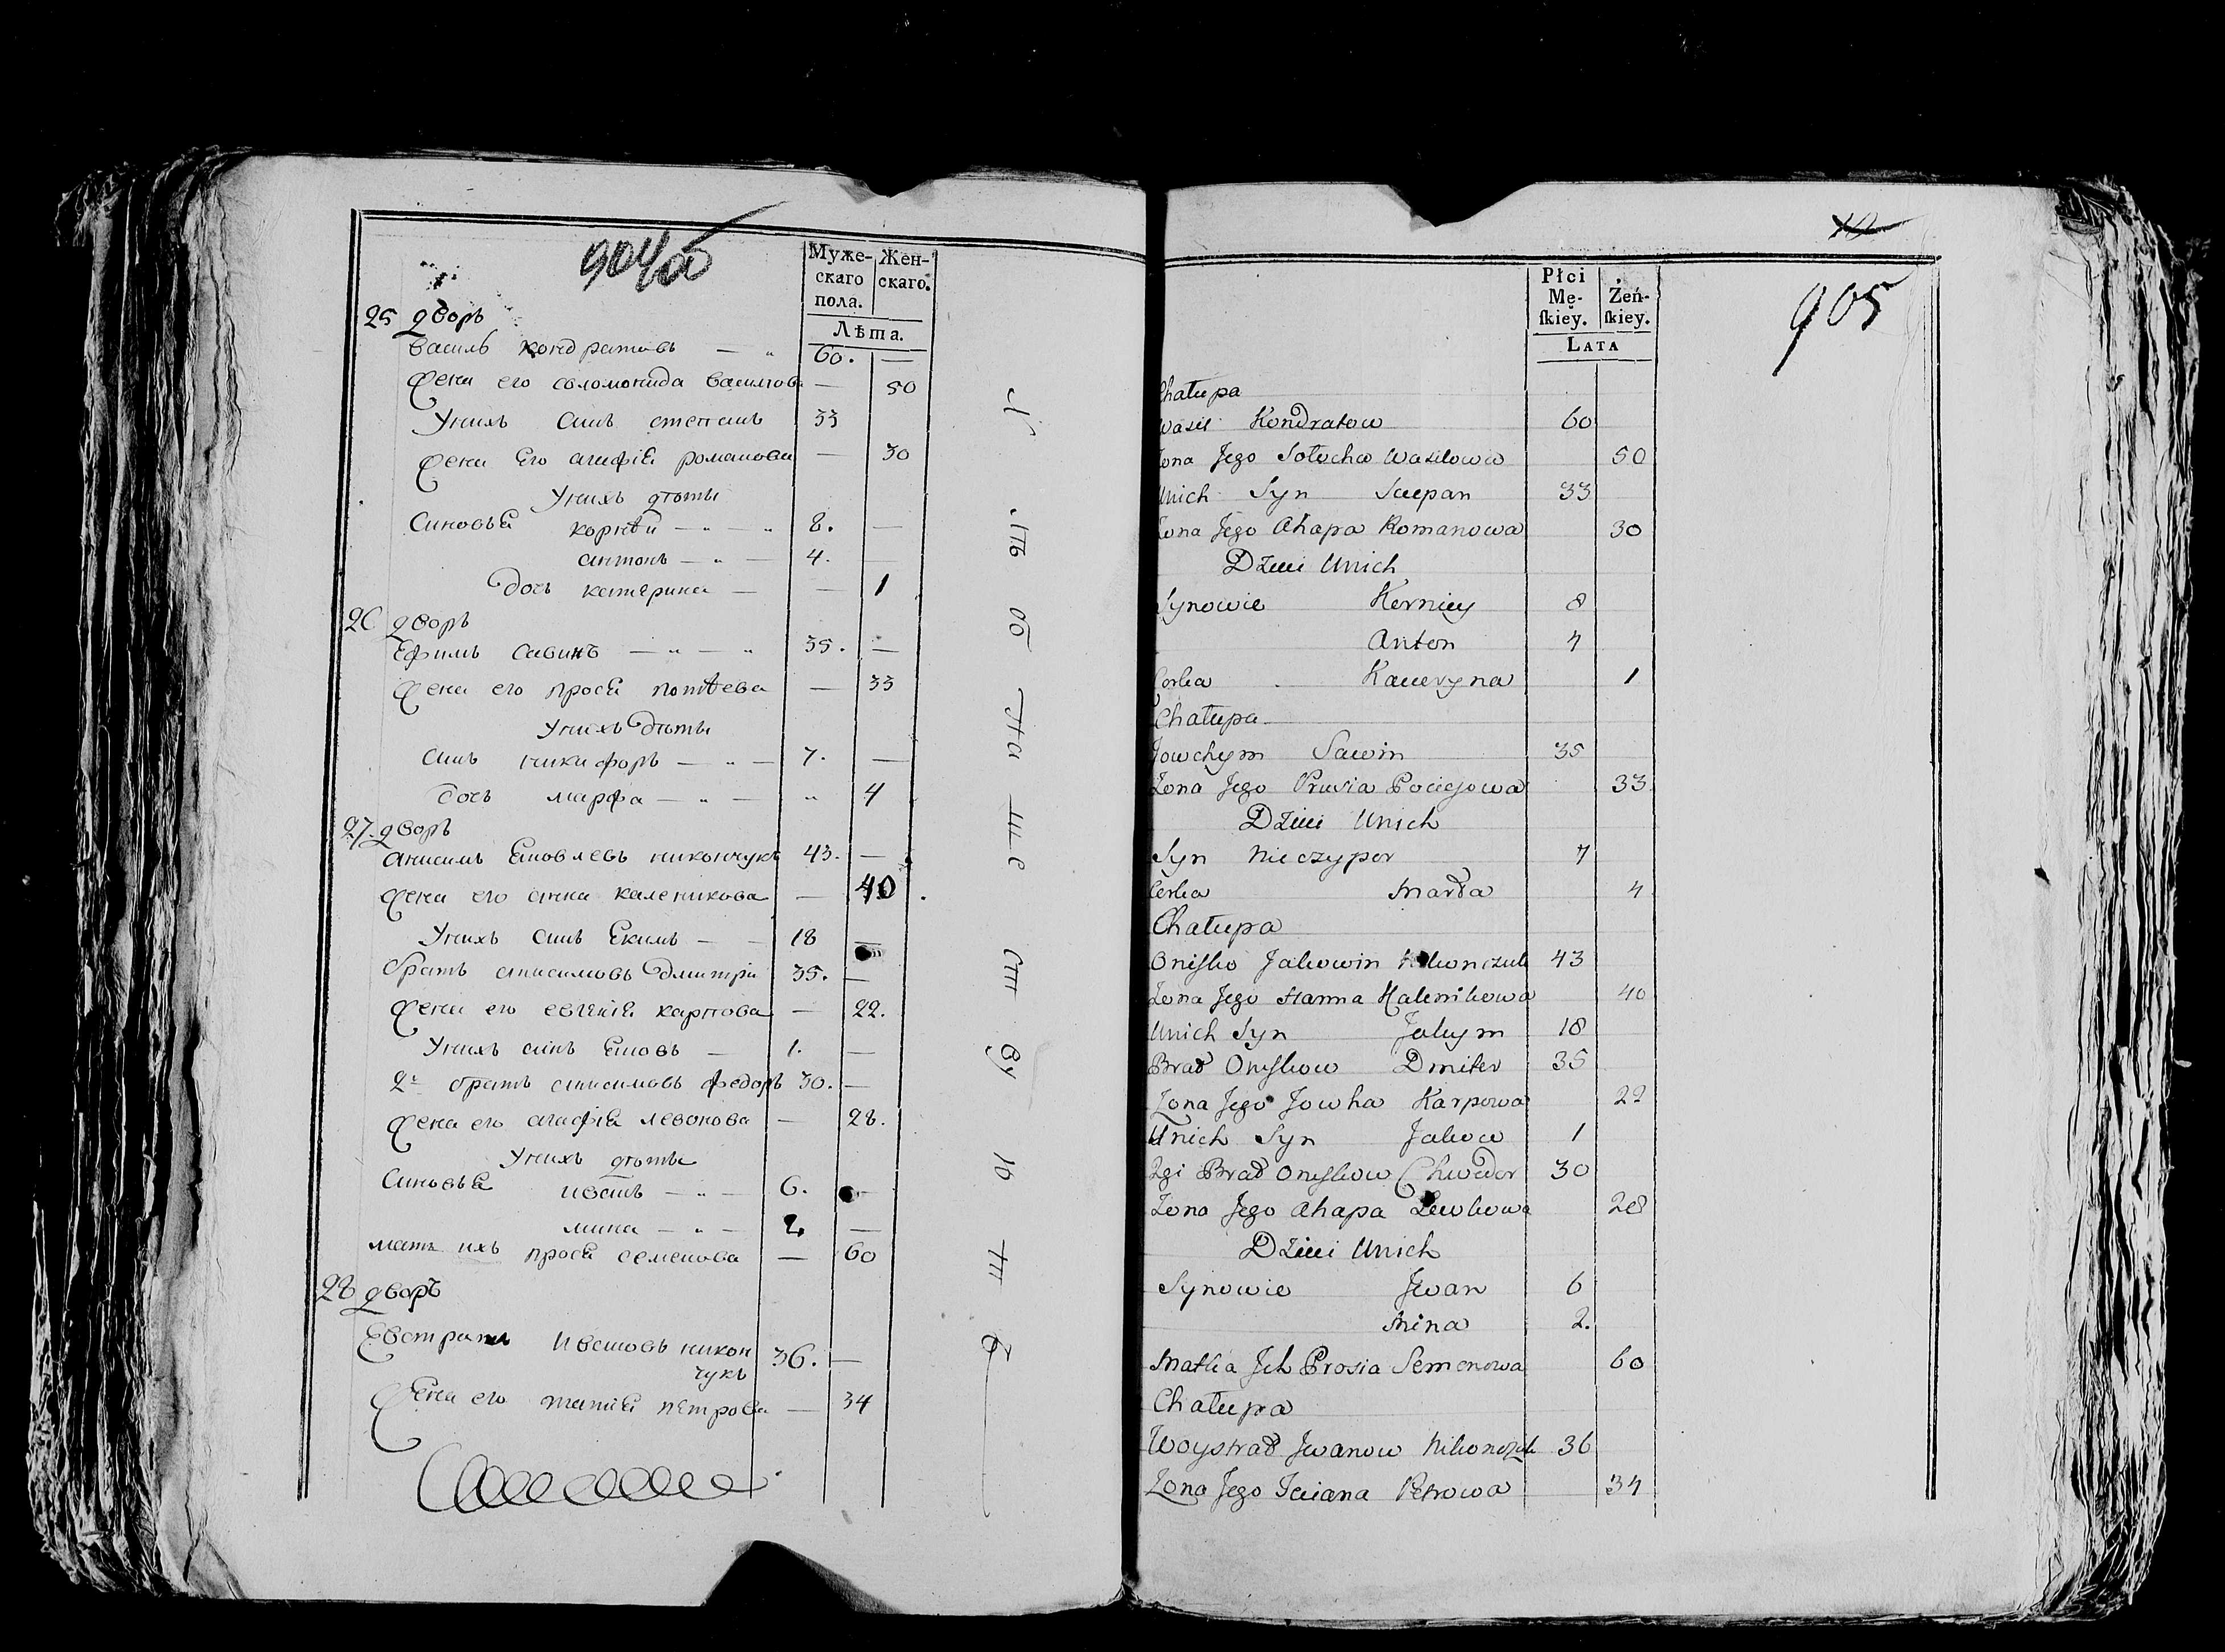 904об
Муже-скаго пола.
Жен-скаго.
Лѣта.
25 дворъ
василь кондратовъ — „ 60. —
жена его соломонида василюва — 50
Унихъ синъ степанъ 33
жена Его агафія романова — 30
Унихъ дѣты
Синовья корнѣй — „ — „ 8. —
антонъ — „ — 4. —
дочъ катерина — — 1
26 дворъ
Ефимъ савинъ — „ — „ 35. —
жена его прося потѣева — 33
Унихъ дѣты
синъ никифоръ — „ — 7. —
дочъ марфа — „ — „ 4
27 дворъ
анисимъ Яковлевъ никончукъ 43. —
жена его анна каленикова — 40
Унихъ синъ Якимъ — 18 —
братъ анисимовъ дмитрій 35. —
жена его евгенія карпова — 22.
Унихъ синъ Яковъ — 1. —
2й братъ анисимовъ федоръ 30. —
жена его агафія левонова — 28.
Унихъ дѣты
Синовья иванъ — „ — 6. —
мина — „ — 2 —
мать ихъ прося семенова — 60
28 дворъ
Евстратъ Ивановъ никон
чукъ 36. —
жена его татія петрова — 34
905
Płci Mę-ſkiey.
Żeń-ſkiey.
LATA
Chałupa
Wasil Kondratow 60
Zona Jego Sołocha Wasilowa 50
Unich Syn Sciepan 33
Zona Jego Ahapa Romanowa 30
Dzieci Unich
Synowie Korniey 8
Anton 4
Corka Kateryna 1
Chałupa
Jowchym Sawin 35
Zona Jego Prusia Pociejowa 33
Dzieci Unich
Syn Nieczypor 7
Corka Marta 4
Chałupa
Oniſko Jakowin Nikonczuk 43
Zona Jego Hanna Kalenikowa 40
Unich Syn Jakym 18
Brat Oniſkow Dmiter 35
Zona Jego Jowha Karpowa 22
Unich Syn Jakow 1
2gi Brat Oniſkow Chwedor 30
Zona Jego Ahapa Lewkowa 28
Dzieci Unich
Synowie Jwan 6
Mina 2.
Matka Jch Prosia Semenowa 60
Chałupa
Woystrat Jwanow Nikonczuk 36
Zona Jego Taciana Petrowa 34